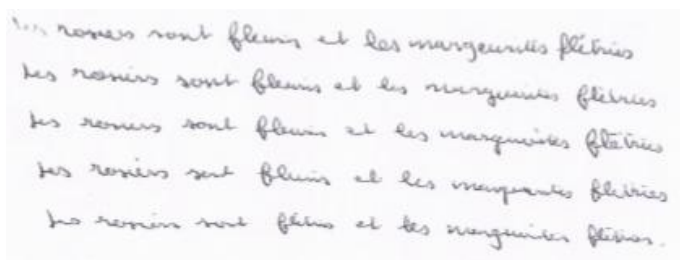 ... rosiers sont fleuris et les marguerites flétries
Les rosiers sont fleuris et les marguerites flétries
Les rosiers sont fleuris et les marguerites flétries
Les rosiers sont fleuris et les marguerites flétries
Les rosiers sont fleuris et les marguerites flétries.